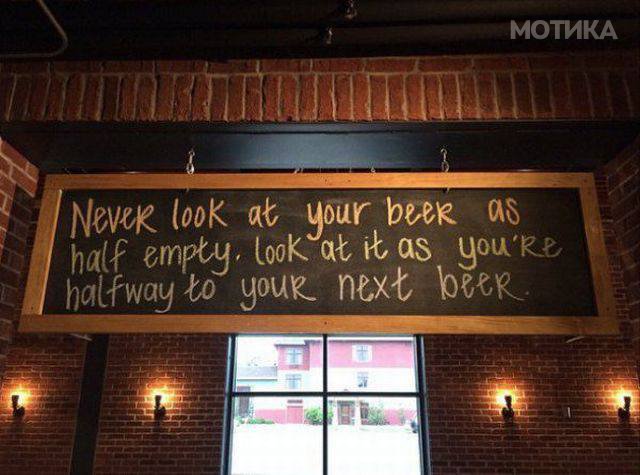 МОТИКА
Never look at your beer as
half empty. look at it as you're
halfway to your next beer.